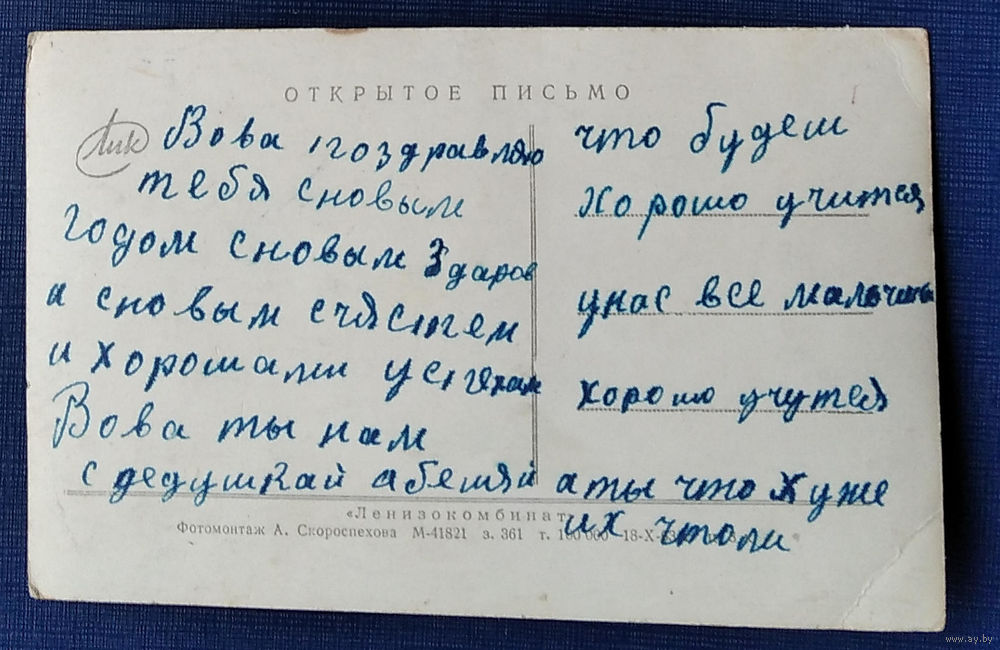 ОТКРЫТОЕ ПИСЬМО
Вова поздравляю
тебя сновым
годом сновым Здаров
и сновым счястем
и хорошами успехам
Вова ты нам
с дедушкай абещяй
что будеш
Хорошо учится
унас все мальчики
хорошо учутся
аты что хуже
их чтоли
«Ленизокомбинат»
Фотомонтаж А. Скороспехова М-41821 з. 361 т. 100 000 18-X-
www.ay.by